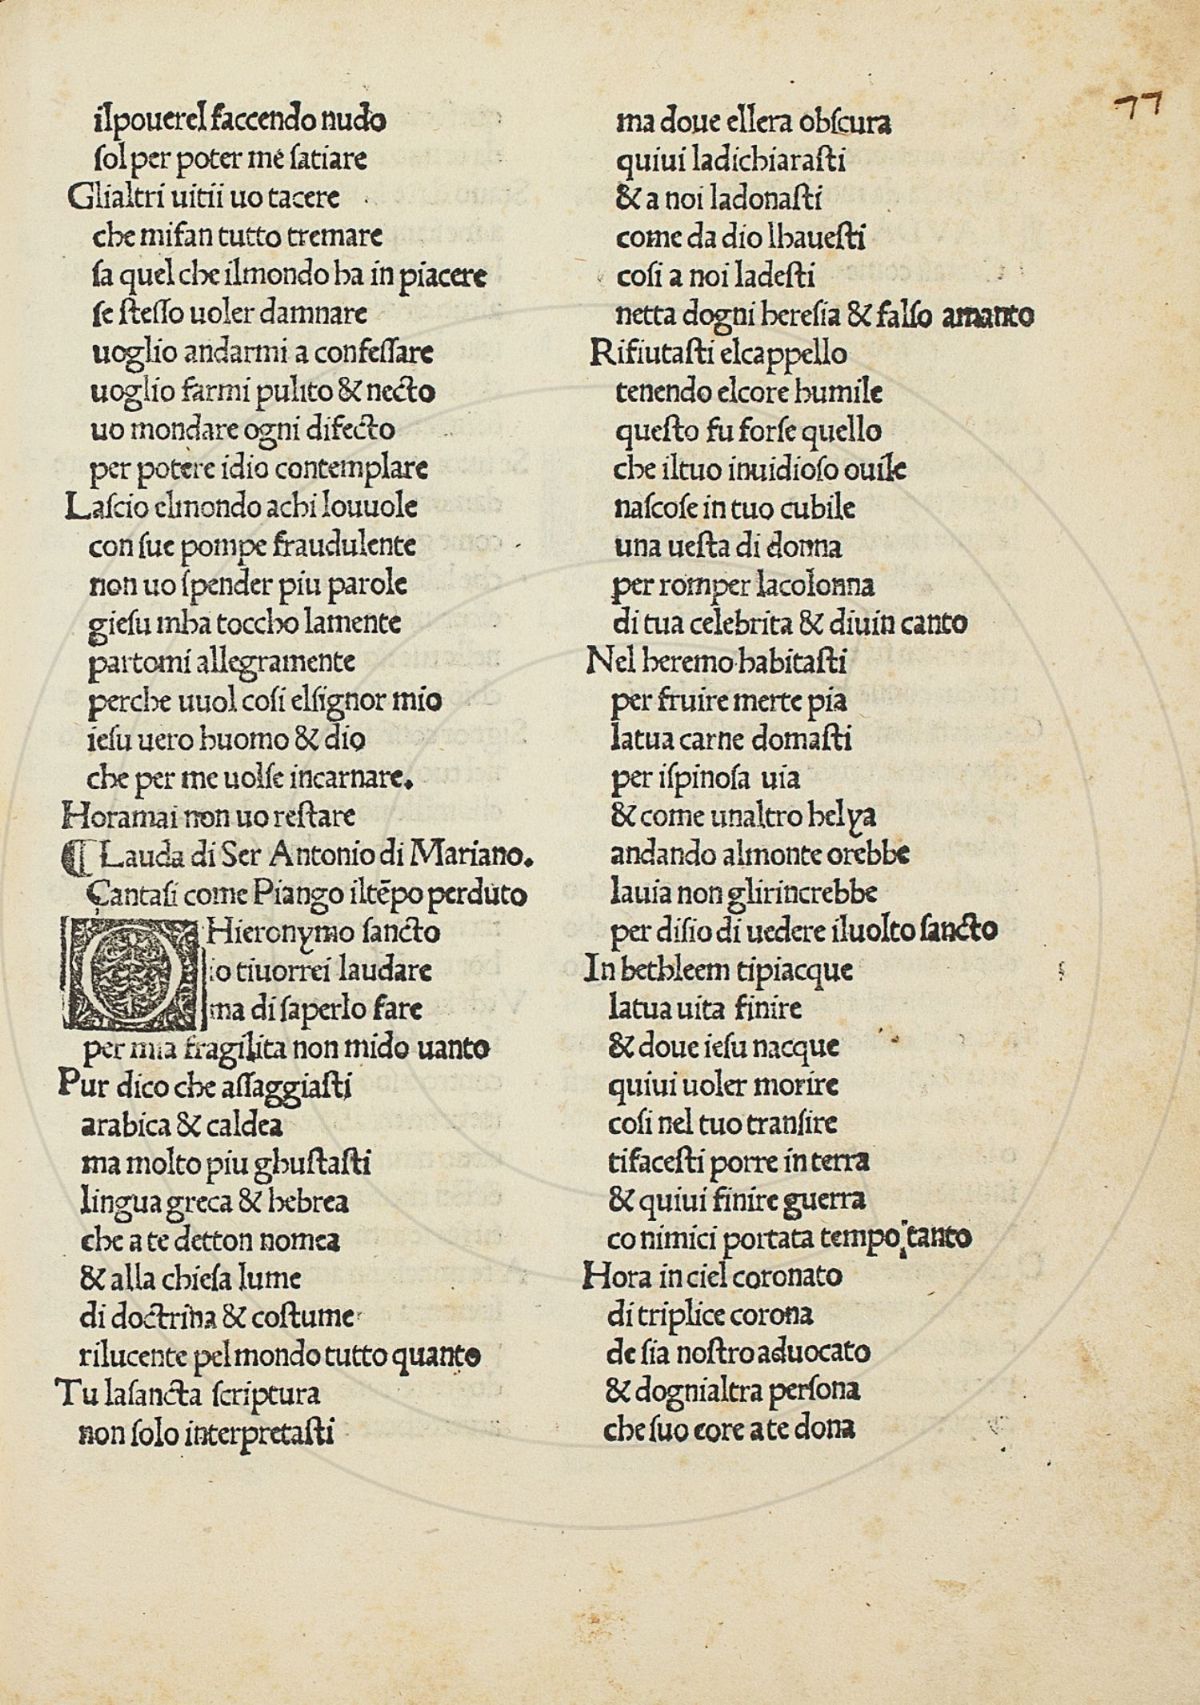 77
ilpouerel faccendo nudo
ſol per poter me ſatiare
Glialtri uitii uo tacere
che mifan tutto tremare
ſa quel che ilmondo ha in piacere
ſe ſteſſo uoler damnare
uoglio andarmi a confeſſare
uoglio farmi pulito & necto
uo mondare ogni difecto
per potere idio contemplare
Laſcio elmondo achi louuole
con ſue pompe fraudulente
non uo ſpender piu parole
gieſu mha toccho lamente
partomi allegramente
perche uuol coſi elſignor mio
ieſu uero huomo & dio
che per me uolſe incarnare.
Horamai non uo reſtare
¶ Lauda di Ser Antonio di Mariano.
Cantaſi come Piango iltēpo perduto
O Hieronymo ſancto
io tiuorrei laudare
ma di ſaperlo fare
per mia fragilita non mido uanto
Pur dico che aſſaggiaſti
arabica & caldea
ma molto piu ghuſtaſti
lingua greca & hebrea
che a te detton nomea
& alla chieſa lume
di doctrina & coſtume
rilucente pel mondo tutto quanto
Tu laſancta ſcriptura
non ſolo interpretaſti
ma doue ellera obſcura
quiui ladichiaraſti
& a noi ladonaſti
come da dio lhaueſti
coſi a noi ladeſti
netta dogni hereſia & falſo amanto
Rifiutaſti elcappello
tenendo elcore humile
queſto fu forſe quello
che iltuo inuidioſo ouile
naſcoſe in tuo cubile
una ueſta di donna
per romper lacolonna
di tua celebrita & diuin canto
Nel heremo habitaſti
per fruire merte pia
latua carne domaſti
per iſpinoſa uia
& come unaltro helya
andando almonte orebbe
lauia non glirincrebbe
per diſio di uedere iluolto ſancto
In bethleem tipiacque
latua uita finire
& doue ieſu nacque
quiui uoler morire
coſi nel tuo tranſire
tifaceſti porre in terra
& quiui finire guerra
co nimici portata tempo tanto
Hora in ciel coronato
di triplice corona
de ſia noſtro aduocato
& dognialtra perſona
che ſuo core a te dona